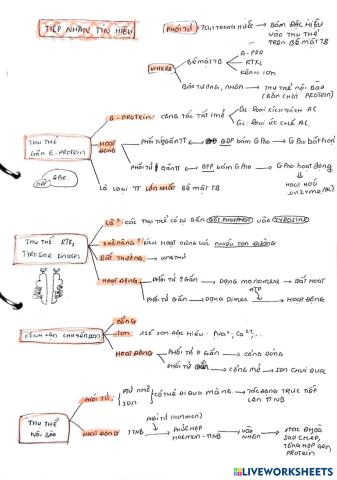 TIẾP NHẬN TÍN HIỆU
PHỐI TỬ: TAN TRONG NƯỚC → BÁM ĐẶC HIỆU VÀO THỤ THỂ TRÊN BỀ MẶT TB
WHERE
BỀ MẶT TB
G-PRO
RTKs
KÊNH ION
BÀO TƯƠNG, NHÂN → THỤ THỂ NỘI BÀO
(BẢN CHẤT PROTEIN)
THỤ THỂ
GẮN G-PROTEIN
GDP
G PRO
G-PROTEIN: CÔNG TẮC TẮT/MỞ
Gs: LOẠI KÍCH THÍCH AC
Gi: LOẠI ỨC CHẾ AC
HOẠT ĐỘNG
PHỐI TỬ GẮN TT → GDP BÁM G PRO → G PRO BẤT HOẠT
PHỐI TỬ GẮN TT → GTP BÁM G PRO → G PRO HOẠT ĐỘNG
HOẠT HOÁ
ENZYME (AC)
LÀ LOẠI TT LỚN NHẤT BỀ MẶT TB
THỤ THỂ RTKs
TYROSINE KINASES
LÀ? CÁC THỤ THỂ CÓ SỰ GẮN GỐC PHOSPHAT VÀO TYROSINE
KHẢ NĂNG? KÍCH HOẠT CÙNG LÚC NHIỀU CON ĐƯỜNG
BẤT THƯỜNG → UNG THƯ
HOẠT ĐỘNG
PHỐI TỬ GẮN → DẠNG MONOMER → BẤT HOẠT
ATP
PHỐI TỬ GẮN → DẠNG DIMER → HOẠT ĐỘNG
KÊNH VẬN CHUYỂN ION
CỔNG
ION: 1 SỐ ION ĐẶC HIỆU: Na⁺, Ca²⁺, ...
HOẠT ĐỘNG
PHỐI TỬ GẮN → CỔNG ĐÓNG
PHỐI TỬ GẮN → CỔNG MỞ → ION CHUI QUA
THỤ THỂ
NỘI BÀO
PHỐI TỬ:
PTỬ NHỎ
ION
CÓ THỂ ĐI QUA MÀNG → TÁC ĐỘNG TRỰC TIẾP LÊN TTNB
HOẠT ĐỘNG
PHỐI TỬ (HORMON)
TTNB → PHỨC HỢP
HORMON-TTNB
→ VÀO
NHÂN
→
SAO CHÉP,
TỔNG HỢP GEN,
PROTEIN
LIVEWORKSHEETS